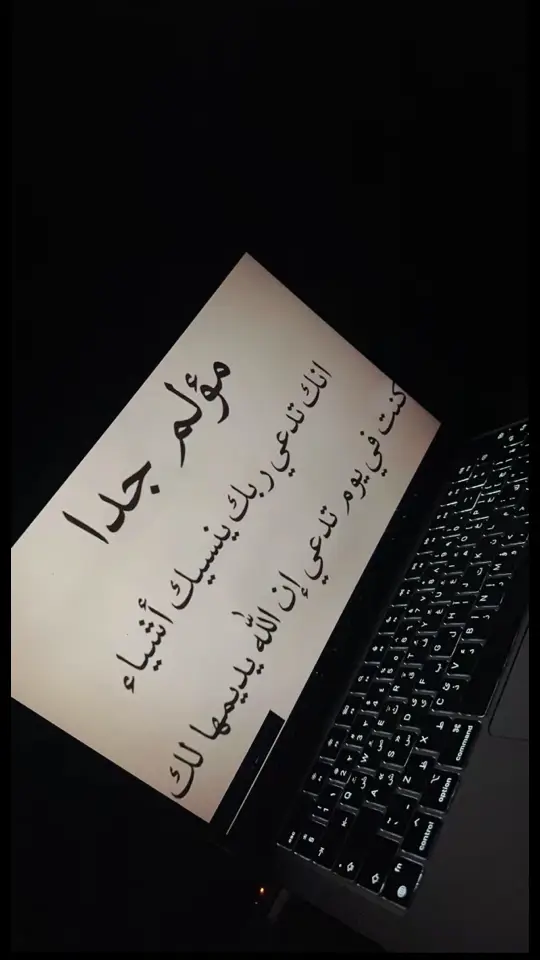 مؤلم جدا
انك تدعي ربك ينسيك أشياء
كنت في يوم تدعي إن الله يديمها لك
control
option
command